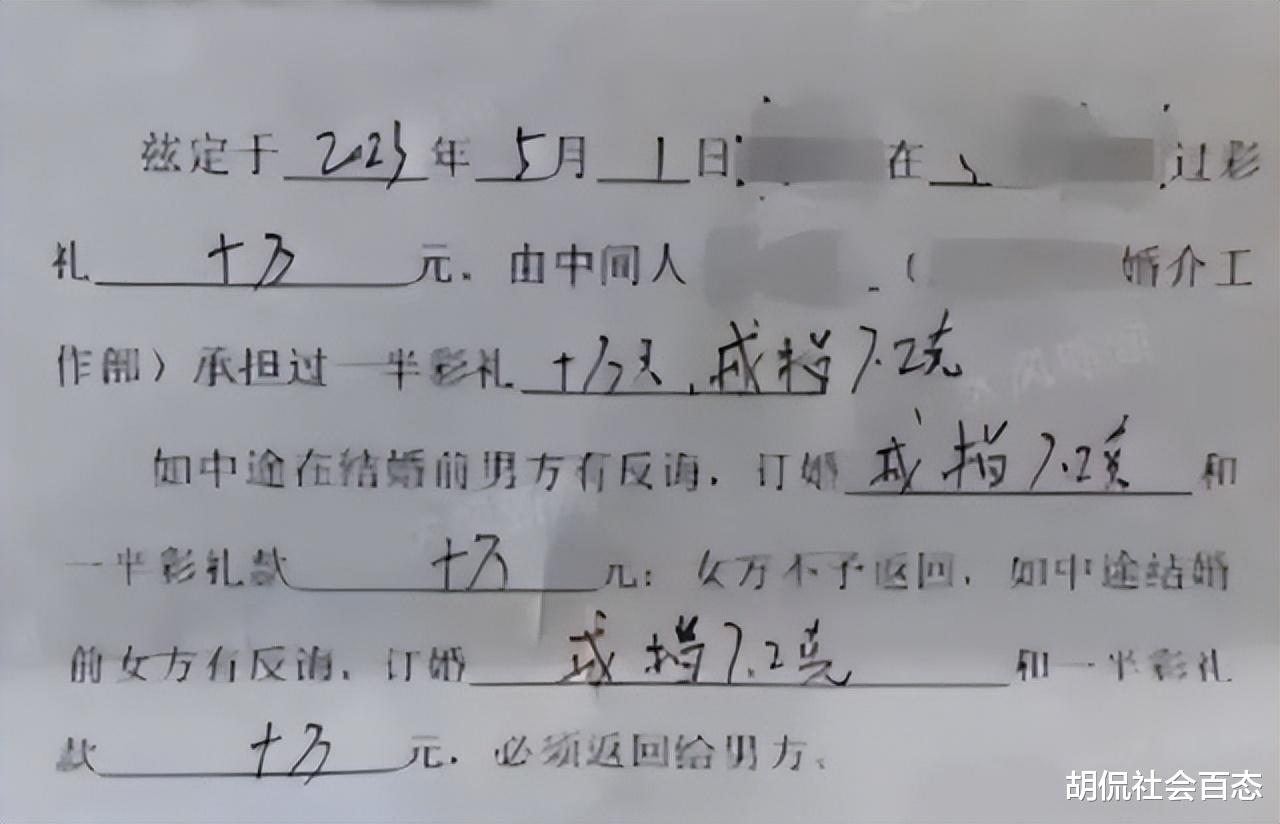 兹定于 2023 年 5 月 1 日 在 过彩
礼 十万 元。由中间人 （ 婚介工
作部）承担过一半彩礼 十万元，戒指7.2克
如中途在结婚前男方有反诲，订婚 戒指7.2克 和
一半彩礼款 十万 元；女方不予返回，如中途结婚
前女方有反诲，订婚 戒指7.2克 和一半彩礼
款 十万 元，必须返回给男方。
胡侃社会百态